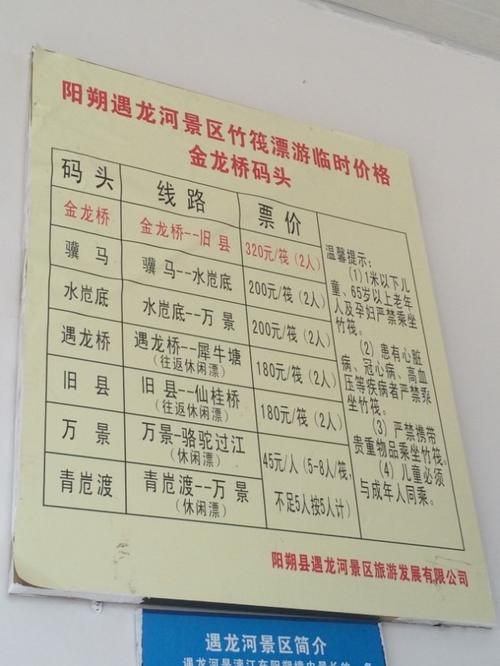 阳朔遇龙河景区竹筏漂游临时价格
金龙桥码头
码头 线路 票价
金龙桥 金龙桥--旧县 320元/筏(2人)
骥马 骥马--水厄底 200元/筏(2人)
水厄底 水厄底--万景 200元/筏(2人)
遇龙桥 遇龙桥--犀牛塘 180元/筏(2人)
(往返休闲漂)
旧县 旧县--仙桂桥 180元/筏(2人)
(往返休闲漂)
万景 万景-骆驼过江 45元/人(5-8人/筏,
(休闲漂)
青厄渡 青厄渡--万景 不足5人按5人计)
(休闲漂)
温馨提示:
(1)1米以下儿
童、65岁以上老年
人及孕妇严禁乘坐
竹筏。
(2)患有心脏
病、冠心病、高血
压等疾病者严禁乘
坐竹筏。
(3)严禁携带
贵重物品乘坐竹筏。
(4)儿童必须
与成年人同乘。
阳朔县遇龙河景区旅游发展有限公司
遇龙河景区简介
遇龙河是漓江在阳朔境内最长的一条